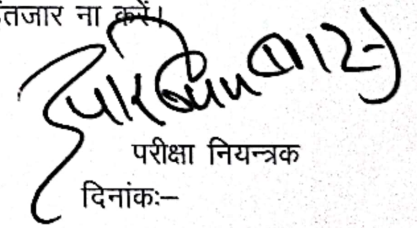 इंतजार ना करें।
परीक्षा नियन्त्रक
दिनांकः–